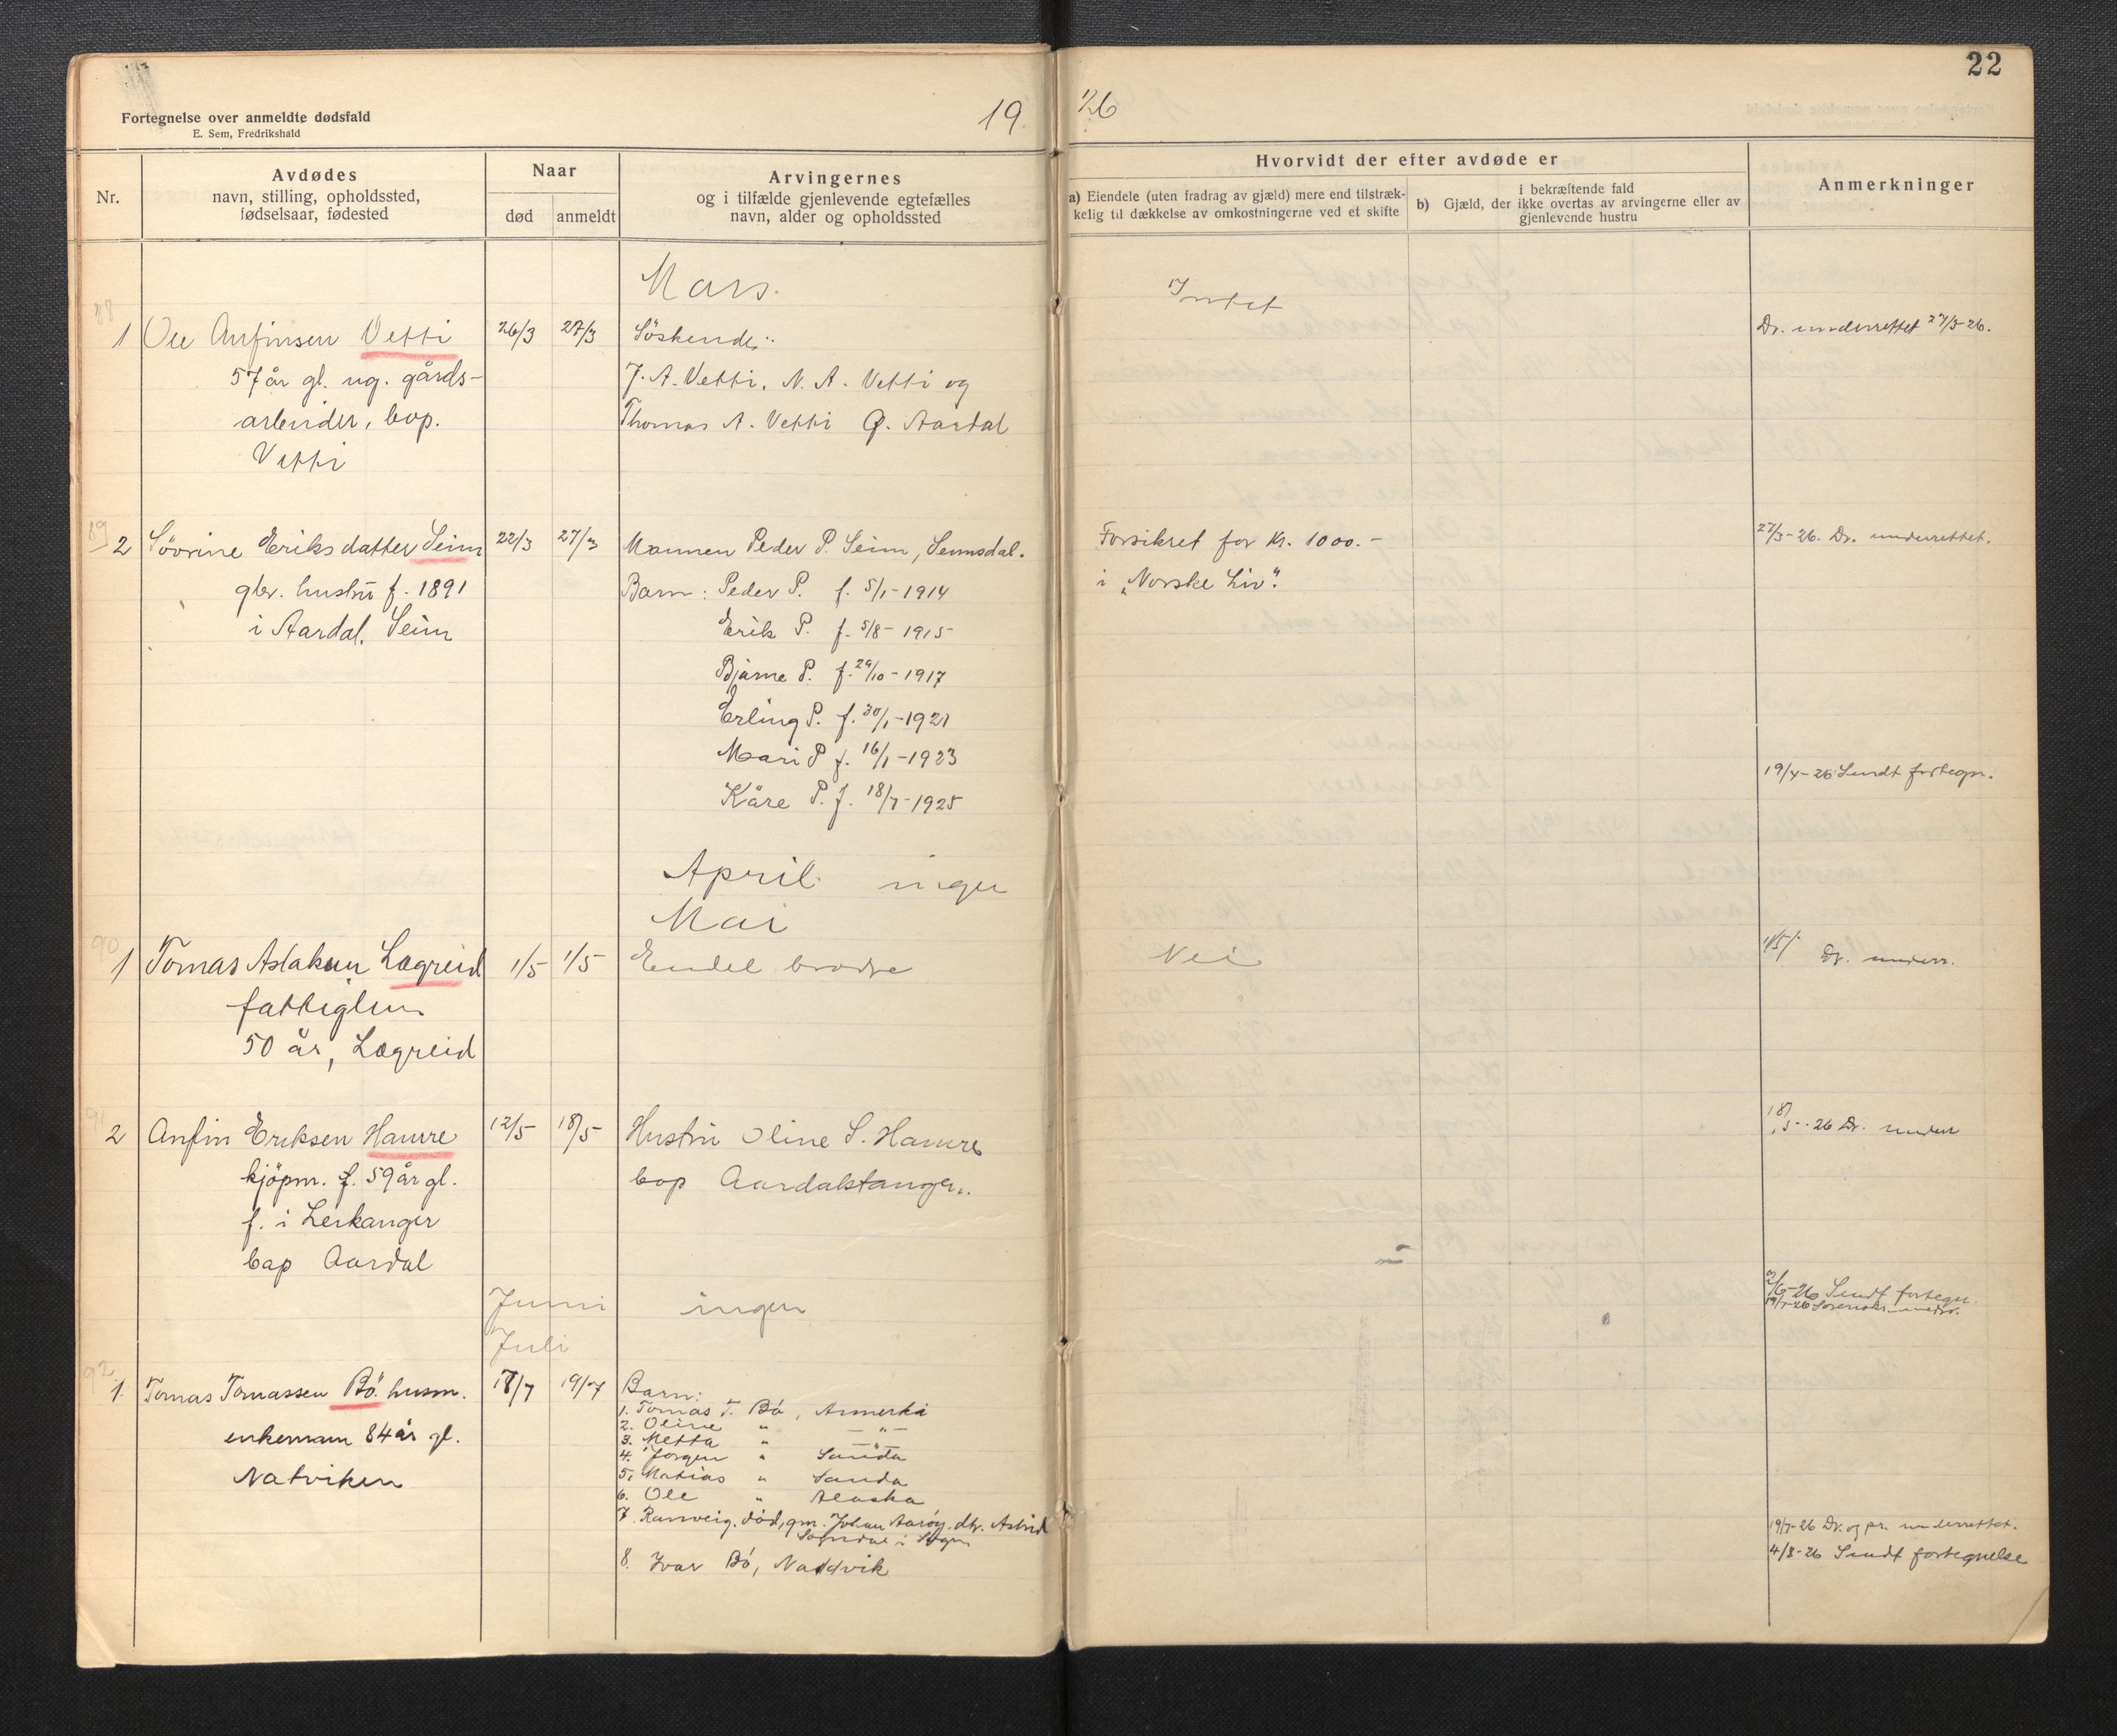 22
Fortegnelse over anmeldte dødsfald
E. Sem, Fredrikshald
19 26
Nr.
Avdødes
navn, stilling, opholdssted,
fødselsaar, fødested
Naar
død
anmeldt
Arvingernes
og i tilfælde gjenlevende egtefælles
navn, alder og opholdssted
Hvorvidt der efter avdøde er
a) Eiendele (uten fradrag av gjæld) mere end tilstræk-
kelig til dækkelse av omkostningerne ved et skifte
i bekræftende fald
b) Gjæld, der ikke overtas av arvingerne eller av
gjenlevende hustru
Anmerkninger
Mars.
88
1 Ole Anfinsen Vetti 26/3 27/3 Söskende:
Intet
Dr. underrettet 27/3-26.
57 år gl. ug. gårds-
arbeider, bop.
Vetti
J. A. Vetti, N. A. Vetti og
Thomas A. Vetti Ø. Aardal
89
2 Sövrine Eriksdatter Seim 22/3 27/3 Mannen Peder P. Seim, Seimsdal.
gbr. hustru f. 1891
i Aardal. Seim
Barn: Peder P. f. 5/1-1914
Erik P. f. 5/8-1915
Bjarne P. f. 29/10-1917
Erling P. f. 30/1-1921
Mari P f. 16/1-1923
Kåre P. f. 18/7-1925
Forsikret for Kr. 1000.-
i "Norske Liv".
27/3-26. Dr. underrettet.
19/4-26 Sendt fortegn.
April ingen
Mai
90
1 Tomas Aslaksen Lægreid 1/5 1/5 Eendel brødre
Nei
1/5 Dr. underr.
fattiglem
50 år, Lægreid
91
2 Anfin Eriksen Hamre 12/5 18/5 Hustru Oline S. Hamre
bop Aardalstangen.
18/5-26 Dr. under
kjöpm. f. 59 år gl.
f. i Leikanger
bop Aardal
Juni ingen
2/6-26 Sendt fortegn.
19/7-26 Sorenskr. underr.
Juli
92
1. Tomas Tomassen Bö. husm. 18/7 19/7 Barn:
enkemann 84 år gl.
Natviken
1. Tomas T. Bö, Amerika
2. Oline " — " —
3. Metta " — " —
4. Jørgen " Sauda
5. Matias " Sauda
6. Ole " Alaska
7. Ranveig. död, gm. Johan Aarøy. dtr. Astrid
Sogndal i Sogn
8. Ivar Bö, Naddvik
19/7-26 Dr. og pr. underrettet.
4/8-26 Sendt fortegnelse